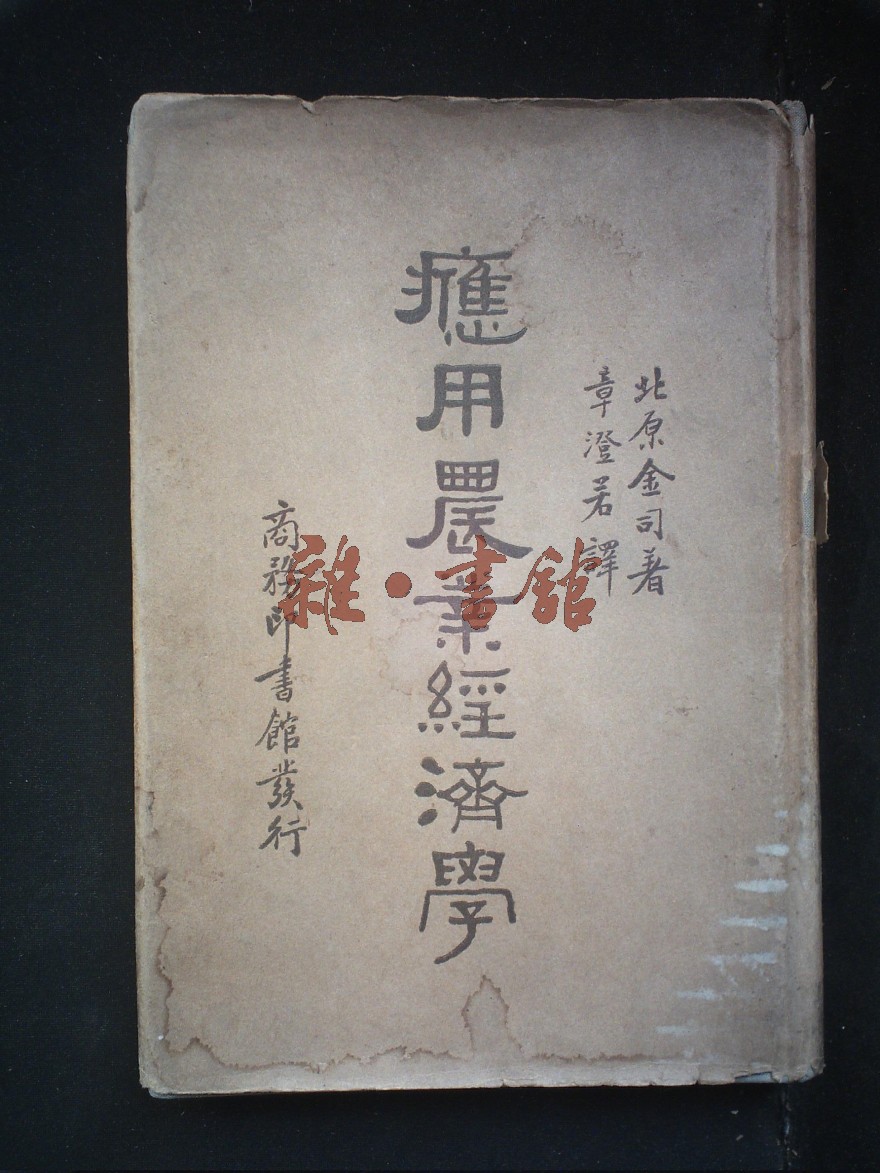 北原金司著
章澄若譯
應用農業經濟學
商務印書館發行
雜·書館